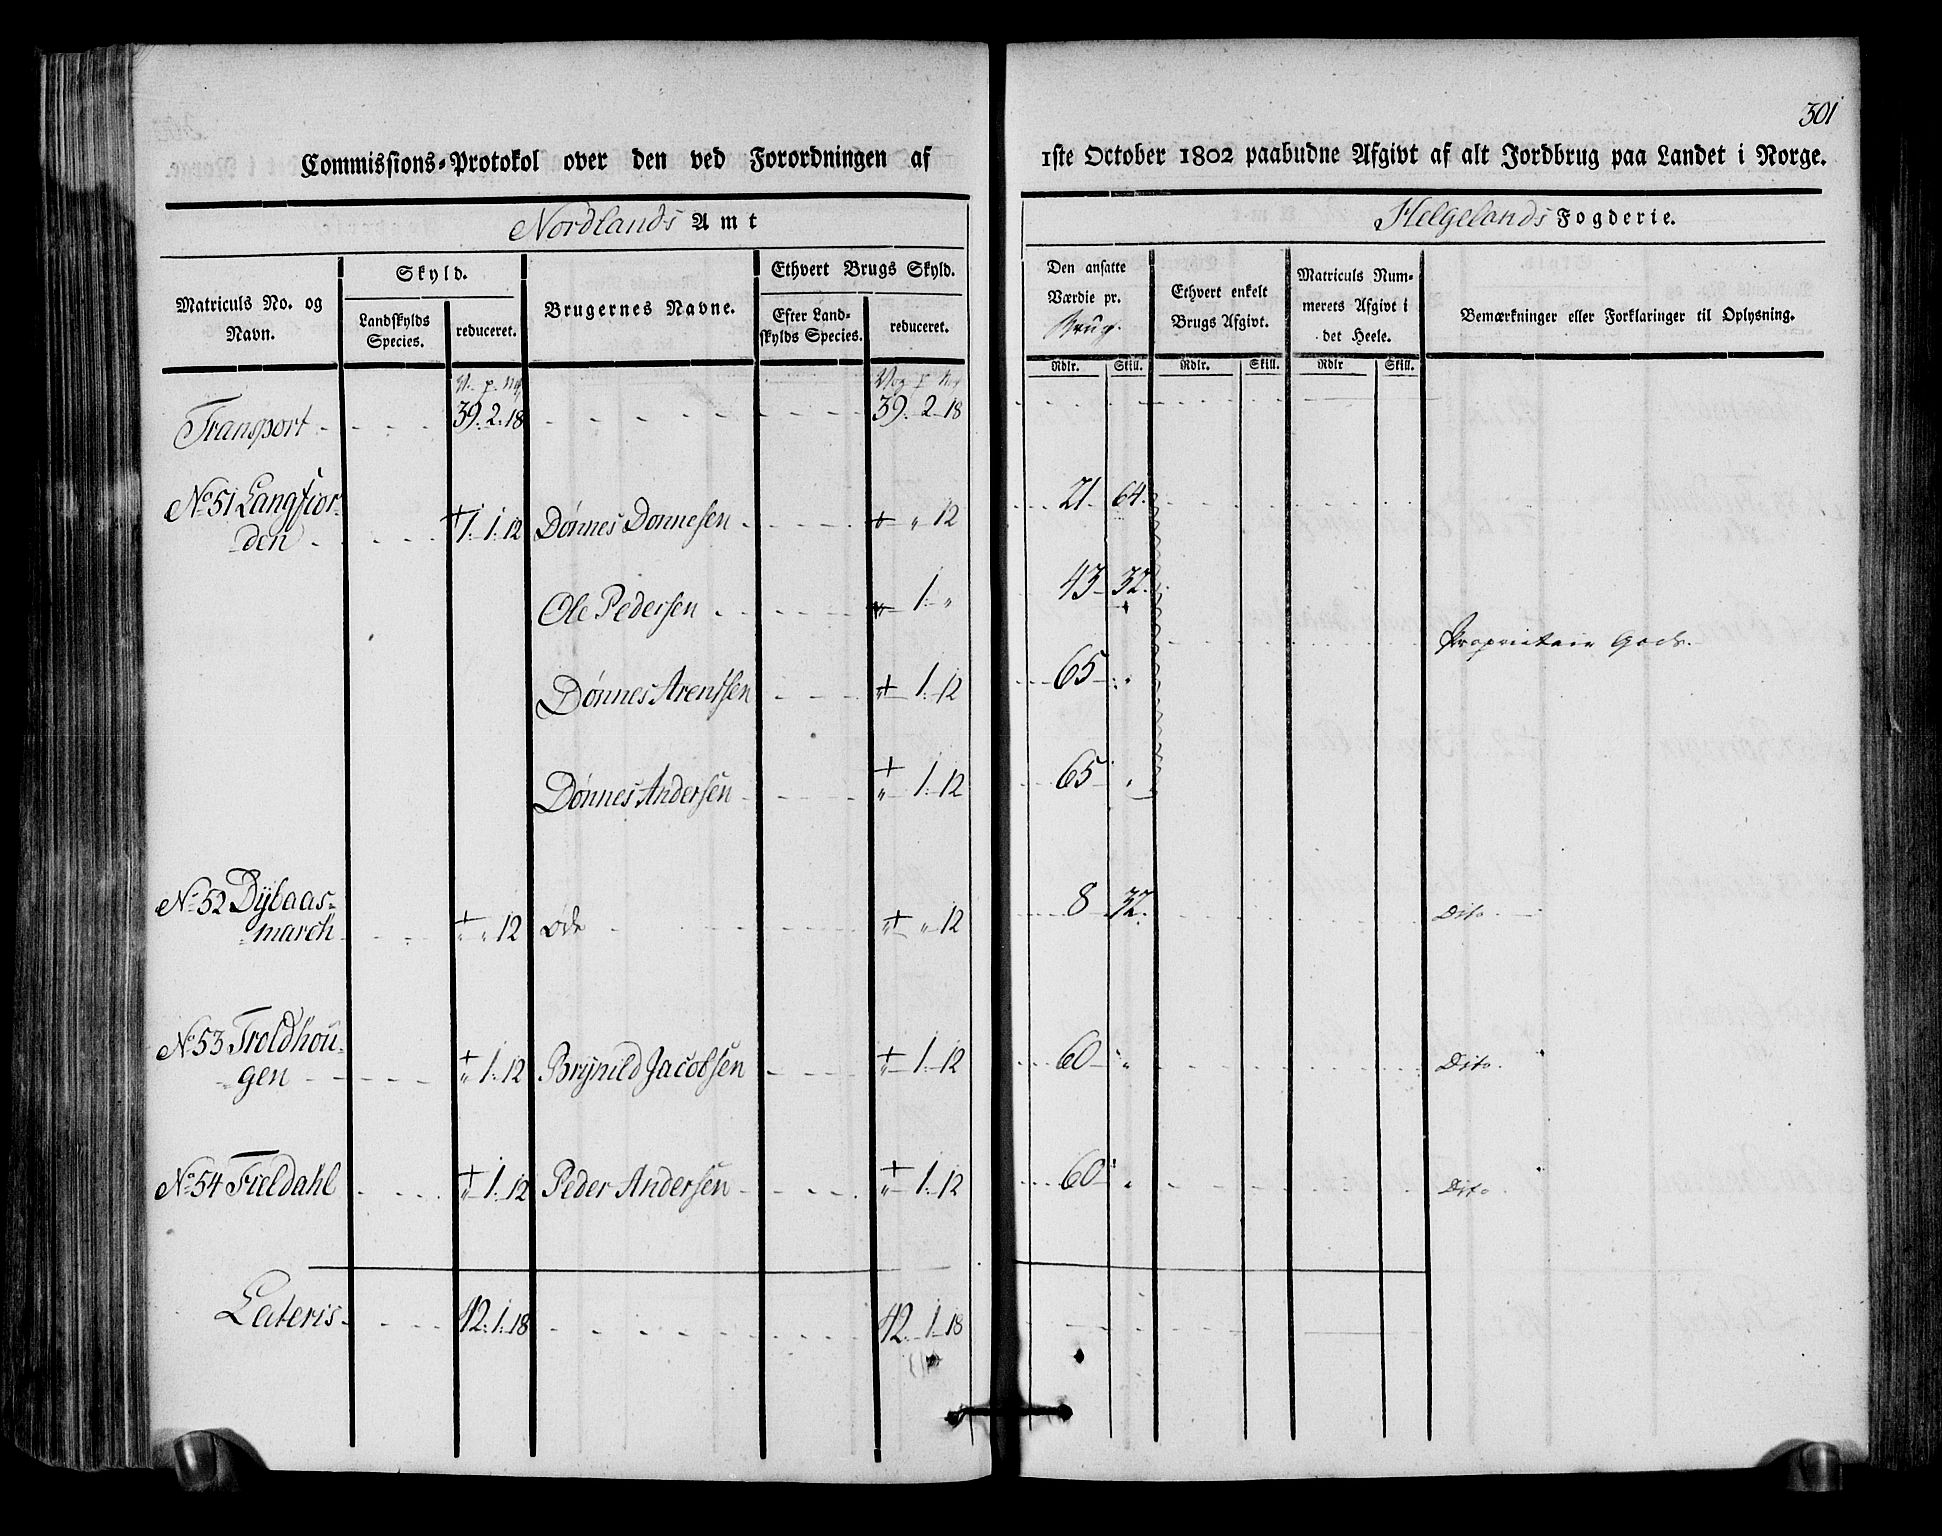 301
Commissions-Protokol over den ved Forordningen af 1ste October 1802 paabudne Afgivt af alt Jordbrug paa Landet i Norge.
Nordlands Amt
Helgelands Fogderie.
Matriculs No. og Navn.
Skyld.
Landskylds Species.
reduceret.
Brugernes Navne.
Ethvert Brugs Skyld.
Efter Landskylds Species.
reduceret.
Den ansatte Værdie pr. Brug.
Ethvert enkelt Brugs Afgivt.
Matriculs Nummerets Afgivt i det Heele.
Bemærkninger eller Forklaringer til Oplysning.
Rdlr. Skill. Rdlr. Skill. Rdlr Skill.
Transport 39. 2. 18 39. 2 18
No 51 Langfior-
den 1. 1. 12 Dønnes Donnesen + " 12 21 64.
Ole Pedersen 1. " 43 32.
Proprietair Gods.
Dønnes Arentsen + 1. 12 65 "
Dønnes Andersen + " 1. 12 65 "
No 52 Dybaas-
march + " " 12 øde + " " 12 8 32. Dito.
No 53 Troldhou-
gen + " 1. 12 Brynild Jacobsen + " 1. 12 60 " Dito.
No 54 Fieldahl + " 1. 12 Peder Andersen + " 1. 12 60 " Dito
Lateris 42. 1. 18 42. 1. 18